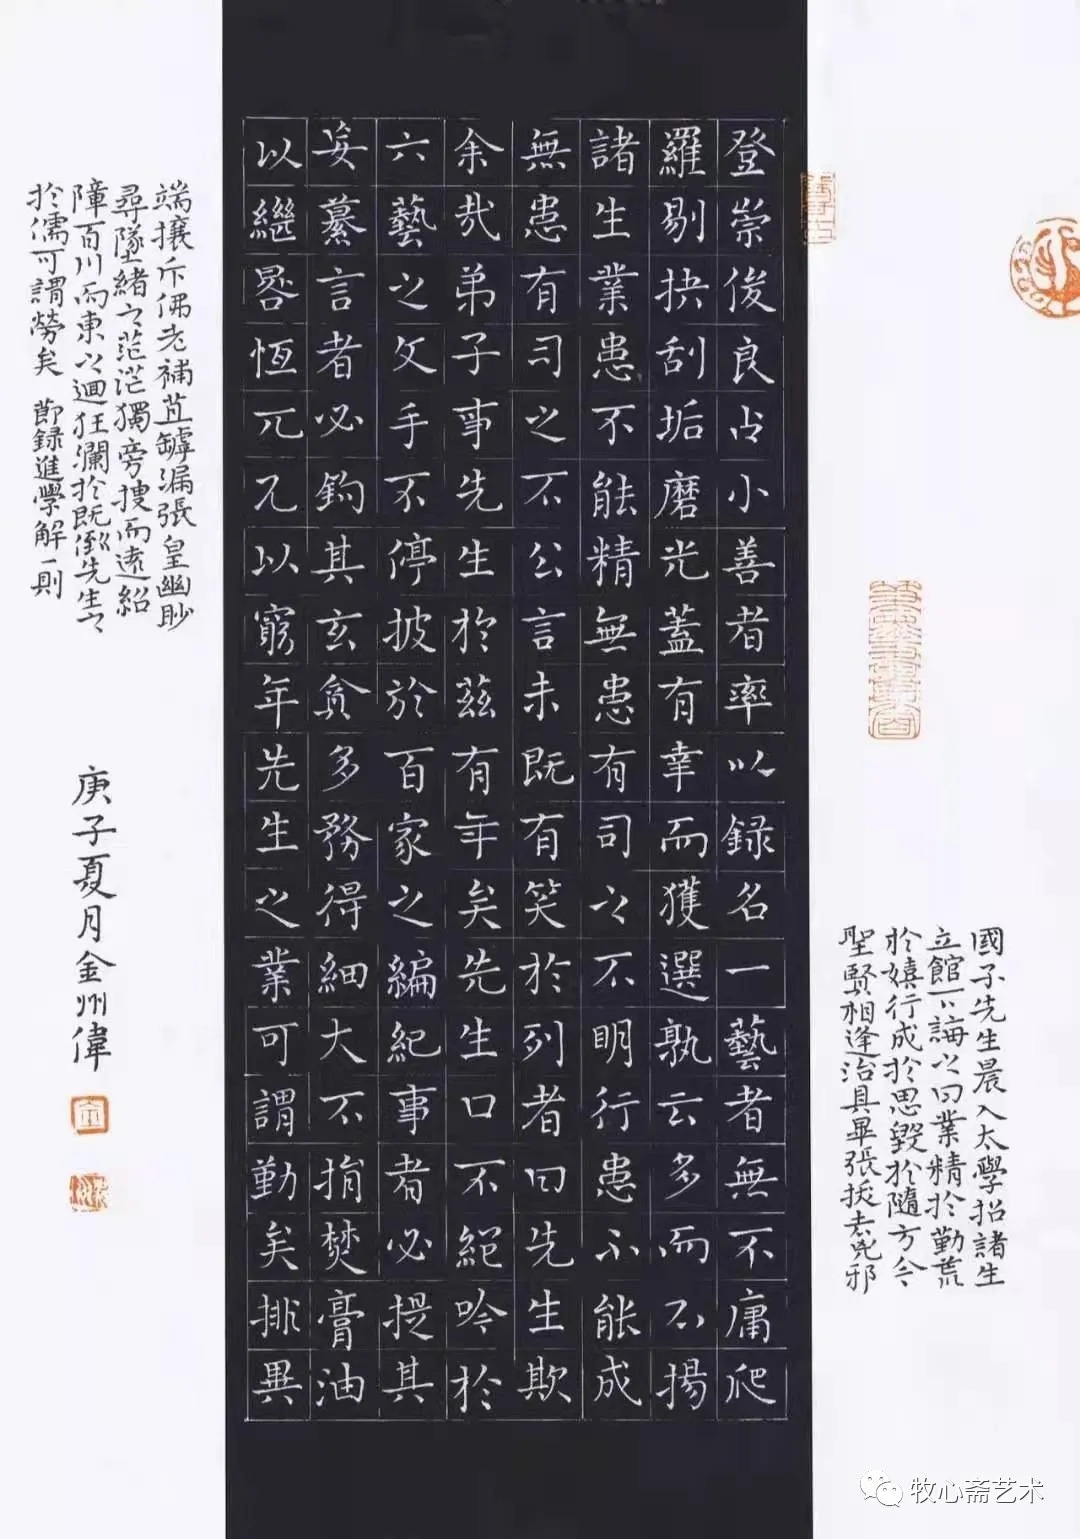 國子先生晨入太學招諸生
立館下誨之曰業精於勤荒
於嬉行成於思毀於隨方今
聖賢相逢治具畢張拔去兇邪
登崇俊良占小善者率以録名一藝者無不庸爬
羅剔抉刮垢磨光蓋有幸而獲選孰云多而不揚
諸生業患不能精無患有司之不明行患不能成
無患有司之不公言未既有笑於列者曰先生欺
余哉弟子事先生於茲有年矣先生口不絕吟於
六藝之文手不停披於百家之編紀事者必提其
要纂言者必鈎其玄貪多務得細大不捐焚膏油
以繼晷恆兀兀以窮年先生之業可謂勤矣排異
端攘斥佛老補苴罅漏張皇幽眇
尋墜緒之茫茫獨旁搜而遠紹
障百川而東之迴狂瀾於既倒先生之
於儒可謂勞矣 節録進學解一則
庚子夏月金州偉
牧心斋艺术